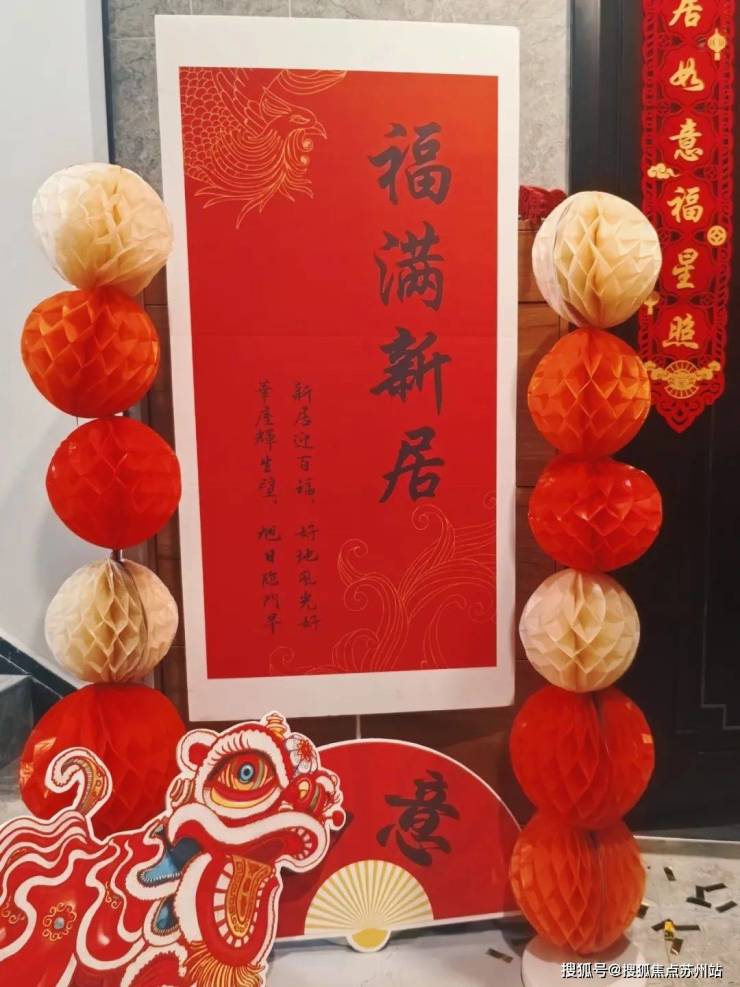 福满新居
新居迎百福，好地風光好
華屋輝生璧，旭日臨門早
居如意福星照
意
搜狐号@搜狐焦点苏州站